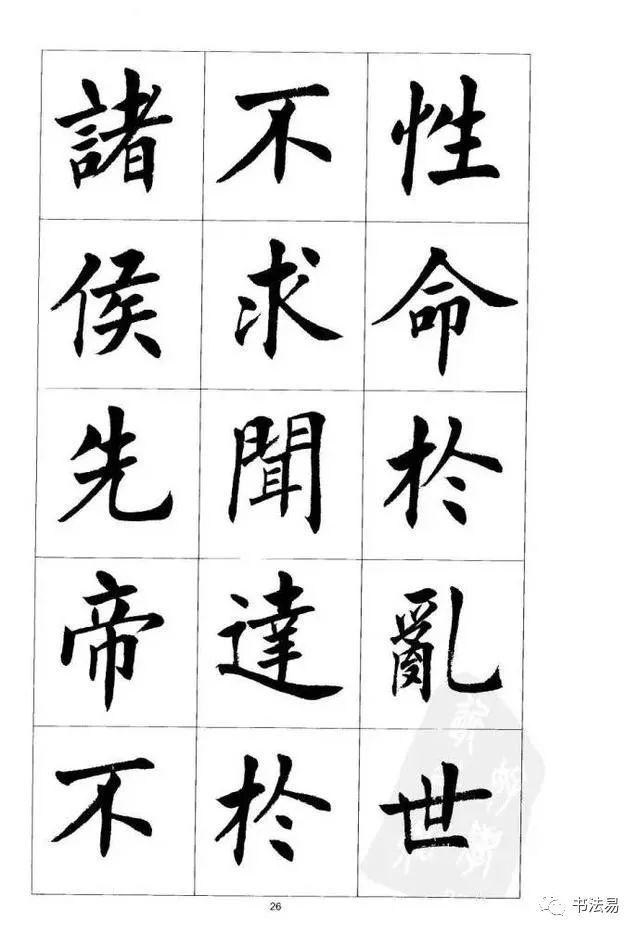 性命於亂世
不求聞達於
諸侯先帝不
26
书法易